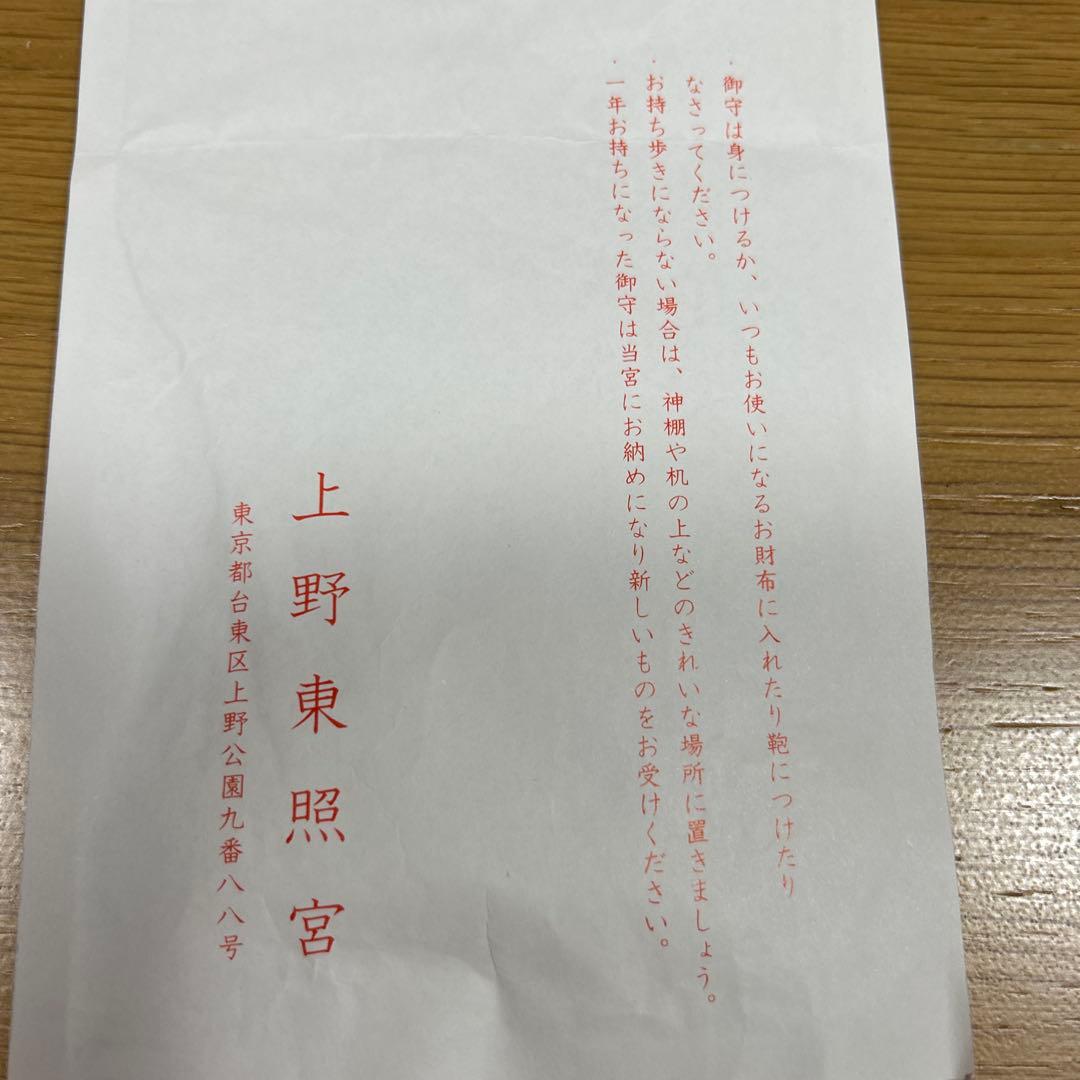 ・御守は身につけるか、いつもお使いになるお財布に入れたり鞄につけたり
なさってください。
・お持ち歩きにならない場合は、神棚や机の上などのきれいな場所に置きましょう。
・一年お持ちになった御守は当宮にお納めになり新しいものをお受けください。
上野東照宮
東京都台東区上野公園九番八八号